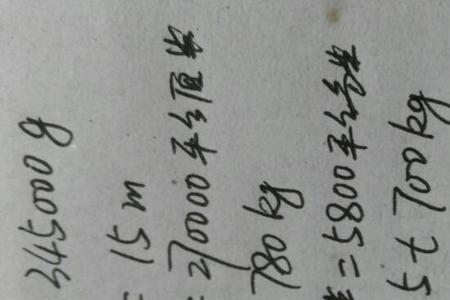 345000g
= 15m
= 270000平方厘米
780kg
= 5800平方
5t 700kg